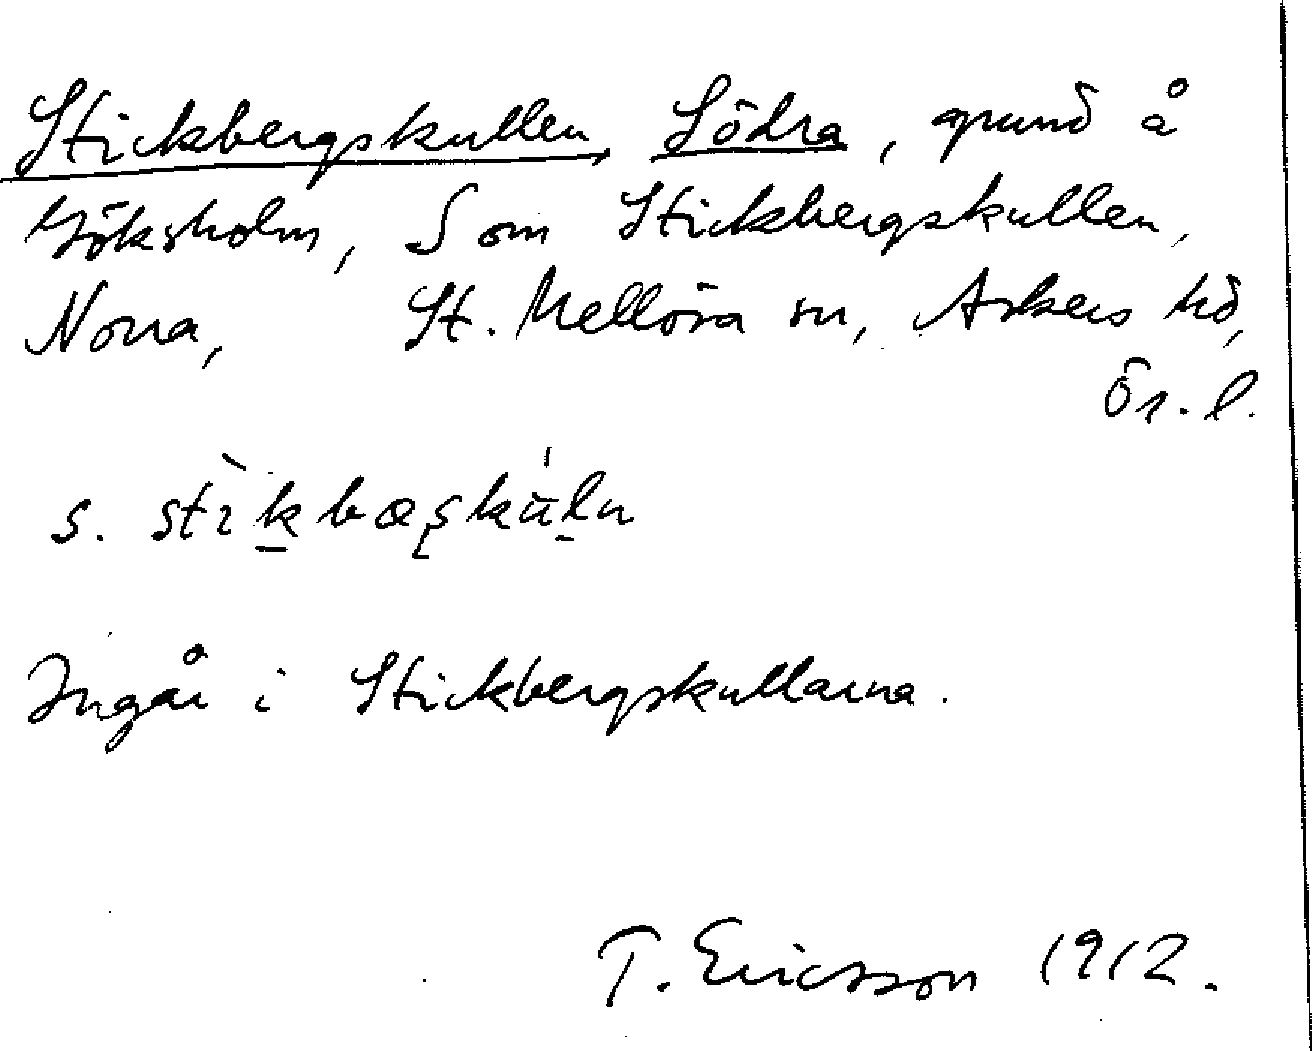 Stickbergskullen, Södra, grund å
Göksholm, S om Stickbergskullen,
Norra, St. Mellösa sn, Askers hd,
Ör. l.
s. stìkbæskúln
Ingår i Stickbergskullarna.
T. Ericsson 1912.